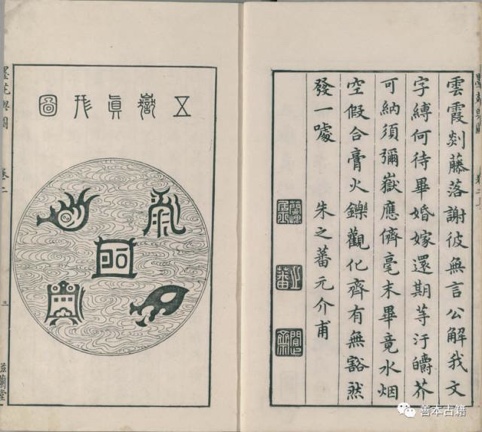 雲霞剡藤落謝彼無言公解我文
字縛何待畢婚嫁還期等汙皭芥
可納須彌嶽應儕毫末畢竟水烟
空假合膏火鑠觀化齊有無豁然
發一噱
朱之蕃元介甫
五嶽眞形圖
卷二
善本古籍